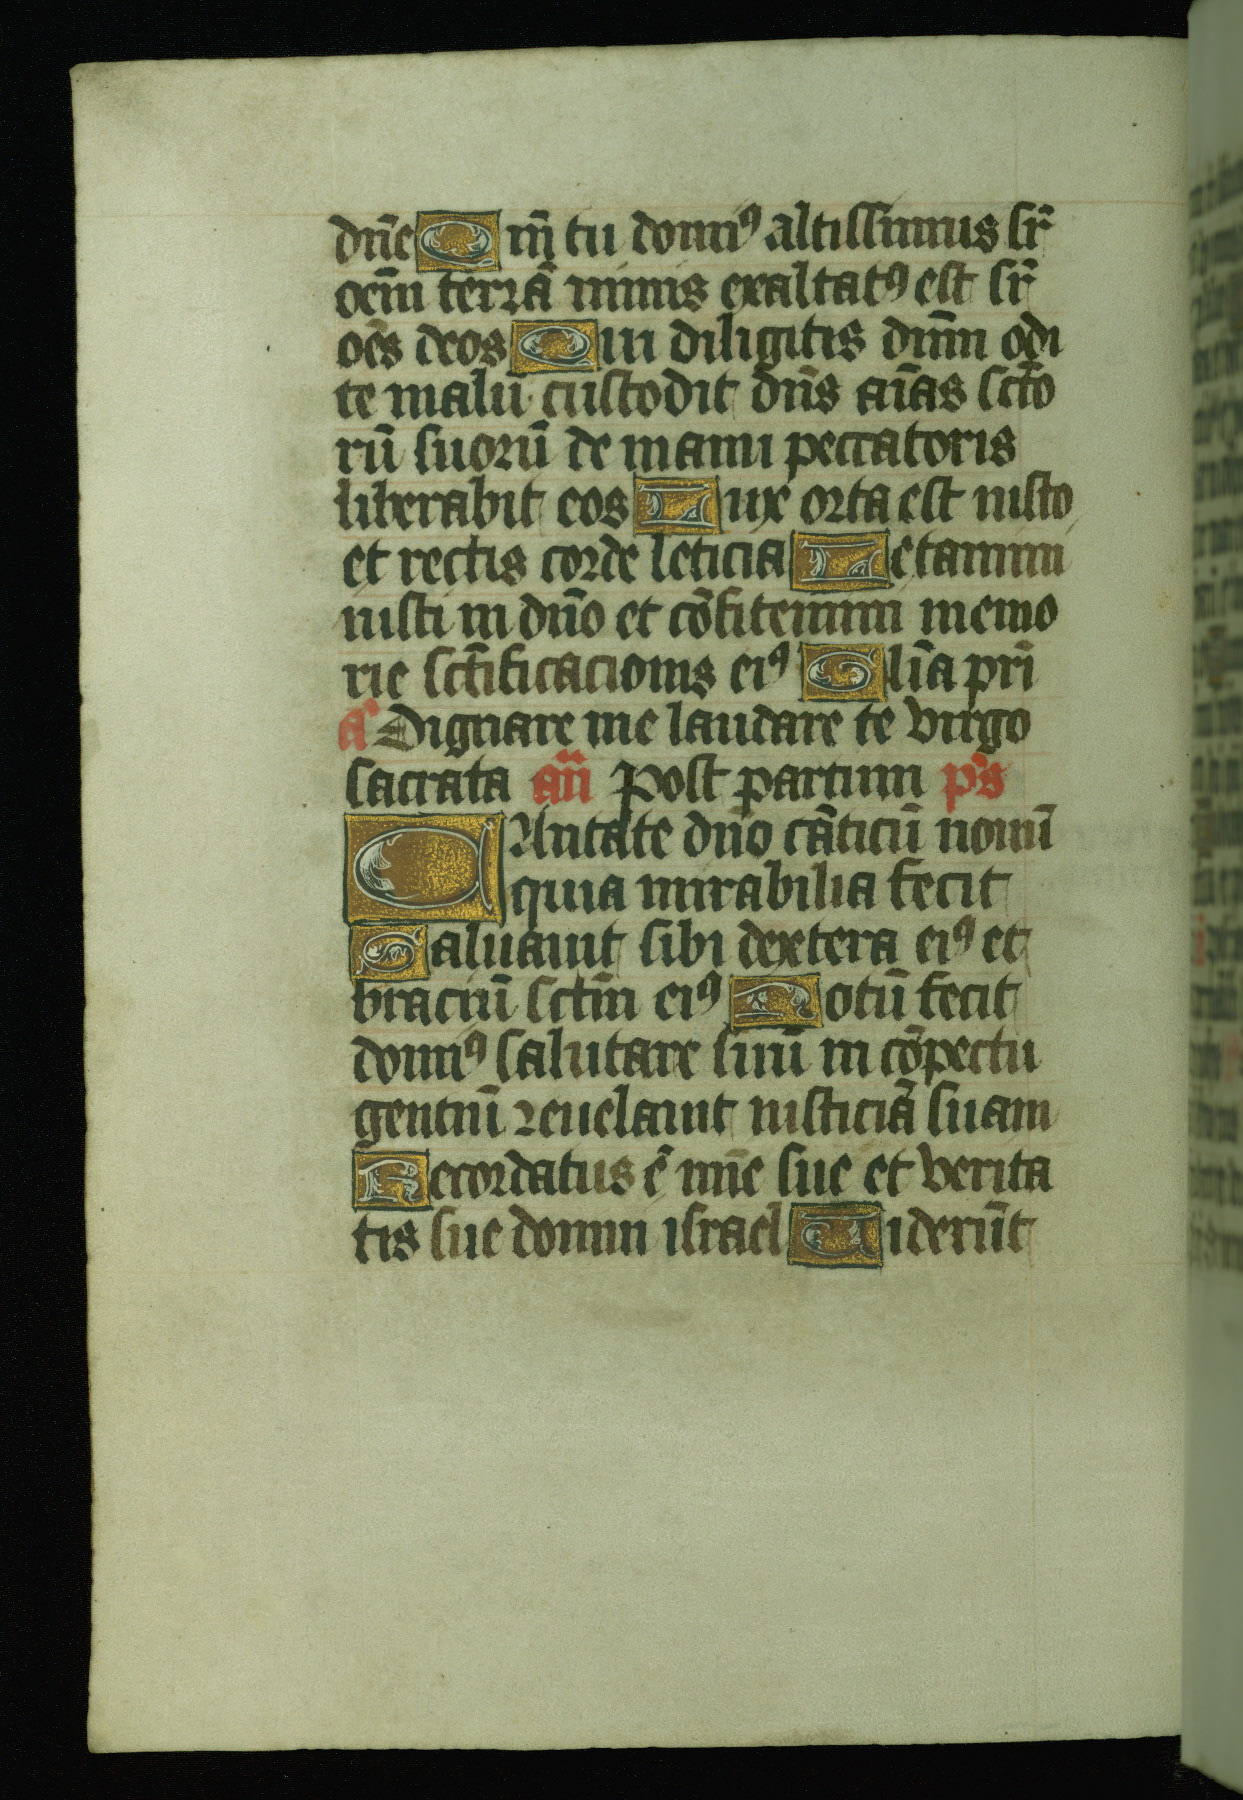 dn̄e Qm̄ tu domīꝰ altissimus sr̄
oēm terrā nimis exaltatꝰ est sr̄
oēs deos Qui diligitis dnm̄ odi
te malū custodit dn̄s aīas sc̄to
rū suorū de manu peccatoris
liberabit eos Lux orta est iusto
et rectis corde leticia Letamini
iusti in dn̄o et cōfitemini memo
rie sc̄tificacionis eiꝰ Gl̄ia pr̄i
a᷑ Dignare me laudare te virgo
sacrata an̄ Post partum p̄s
CAntate dn̄o cāticū nouū
quia mirabilia fecit
Saluauit sibi dextera eiꝰ et
braciū sc̄tm eiꝰ Notū fecit
domīꝰ salutare suū in cōpectu
gentiū reuelauit iusticiā suam
Recordatus ē mīe sue et verita
tis sue domui israel Uiderūt